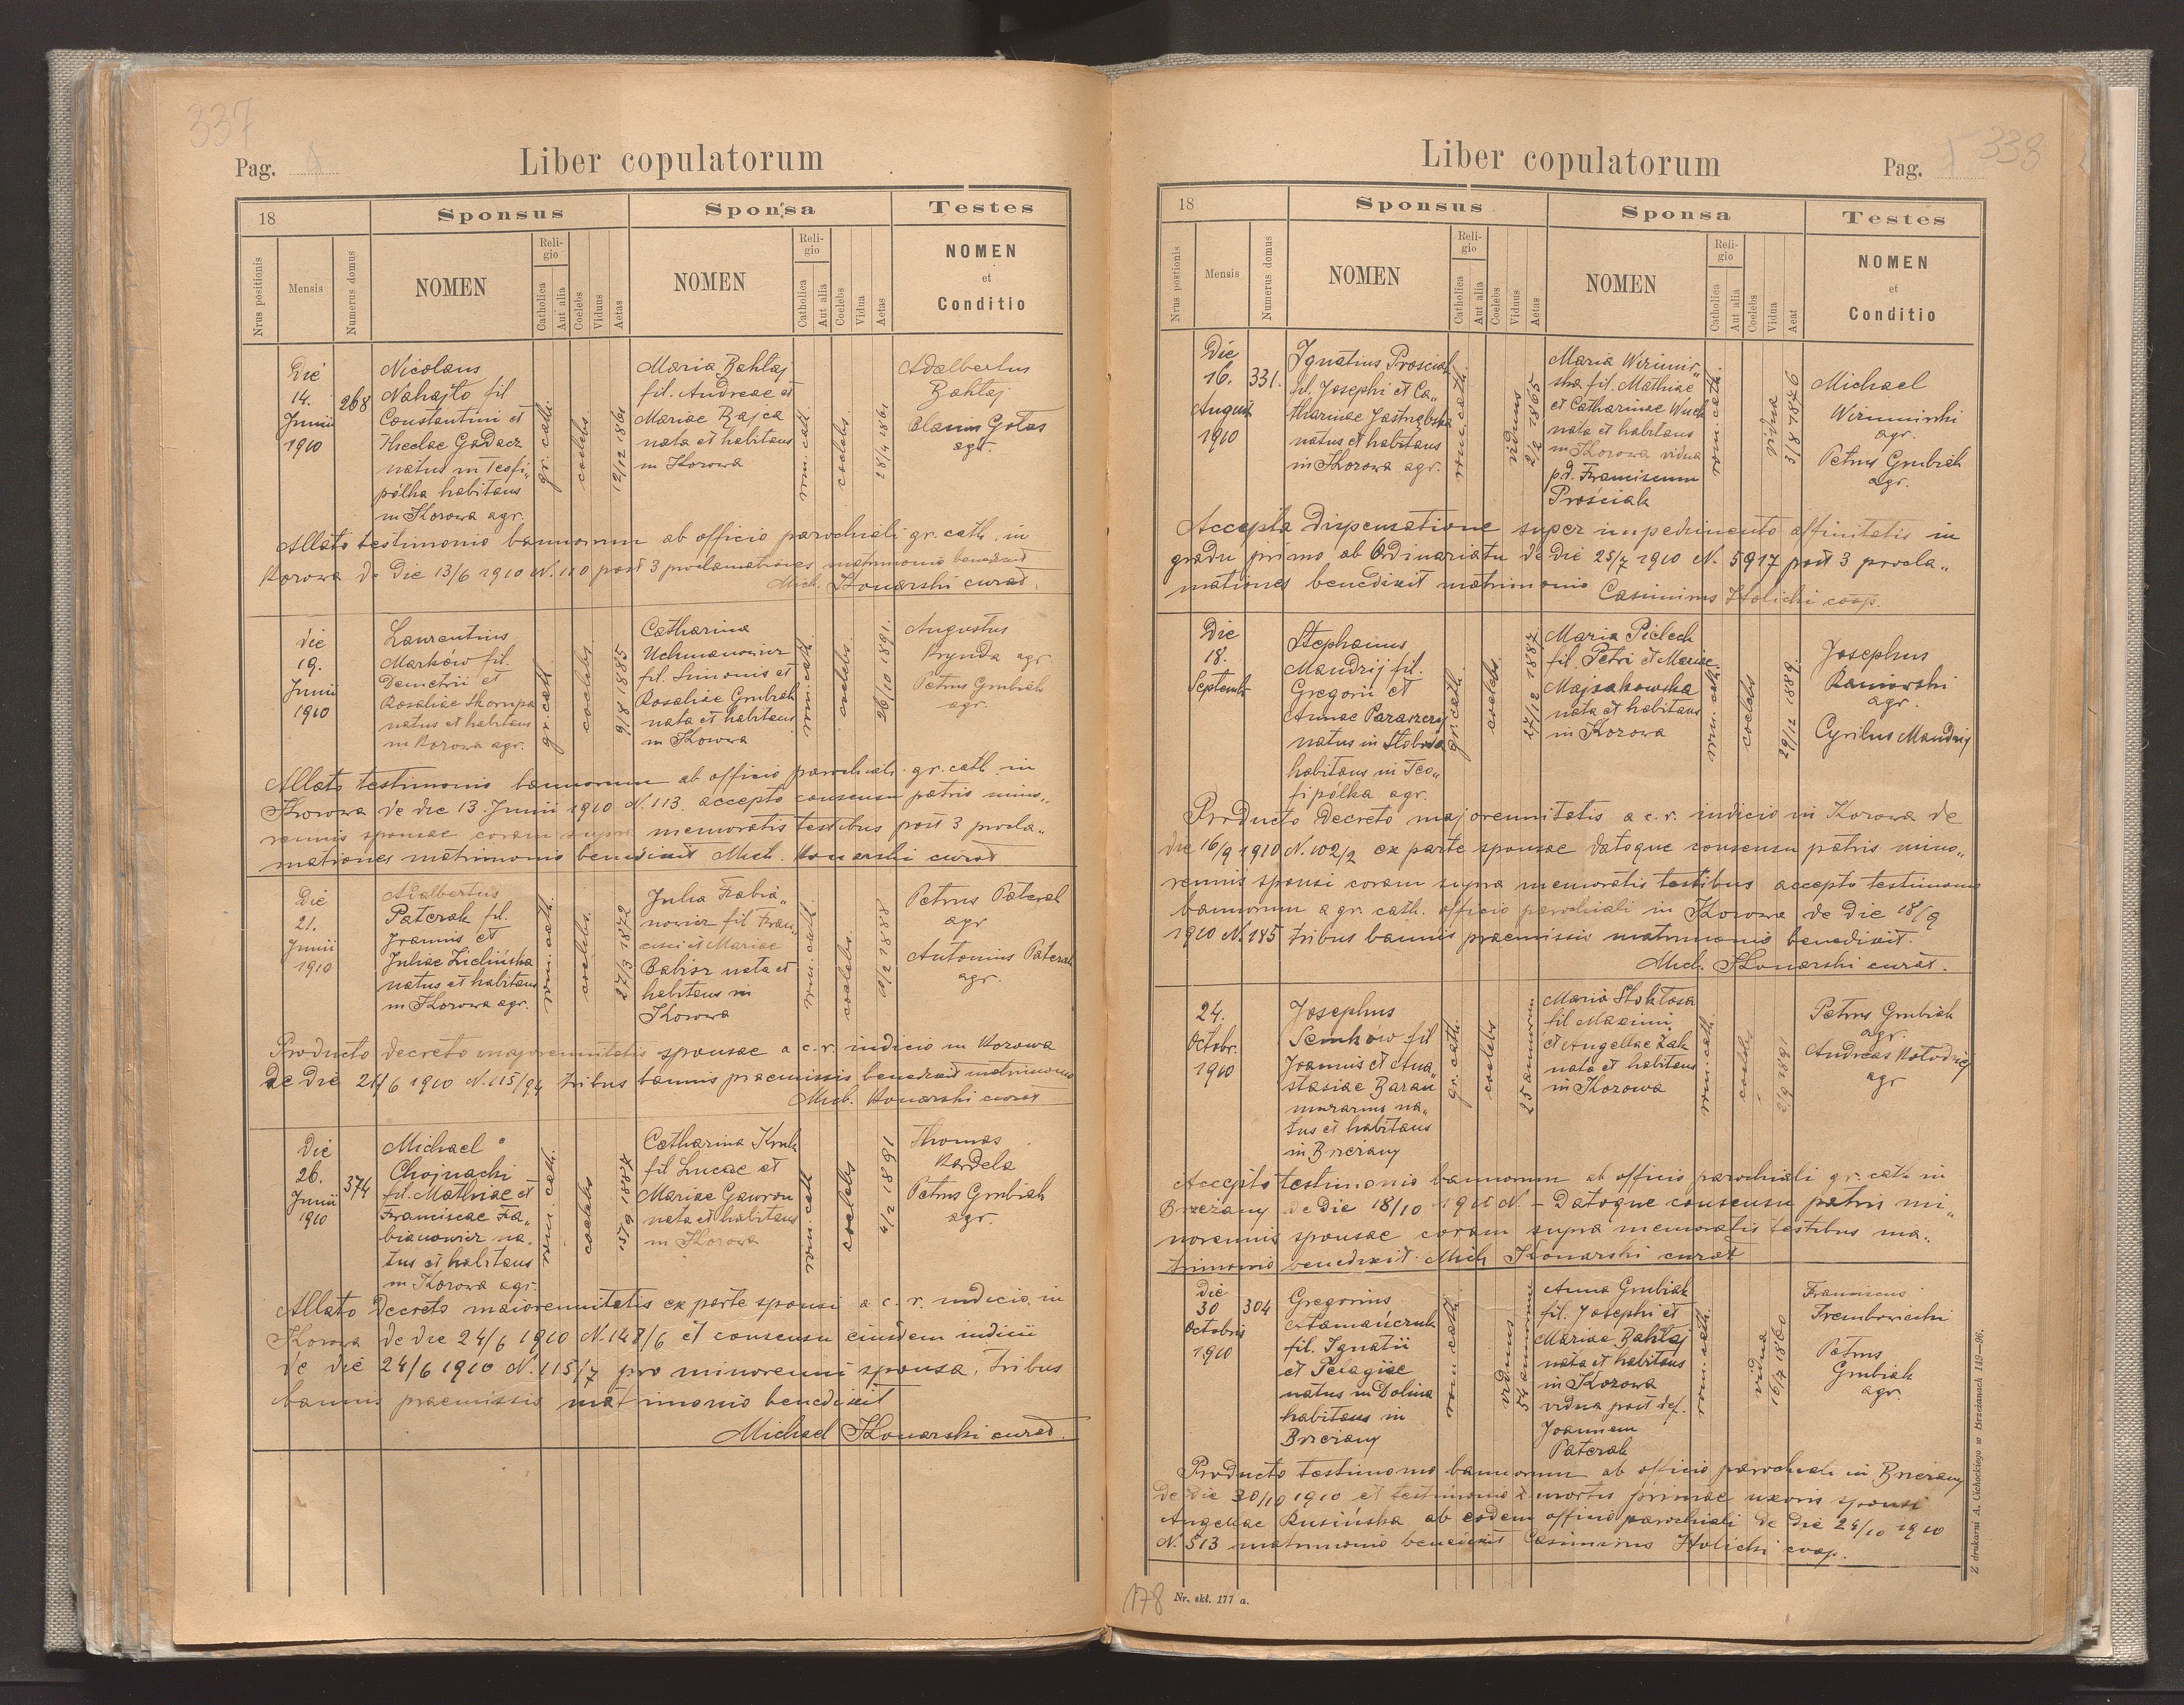 337
Pag.
Liber copulatorum
18
Sponsus
Sponsa
Testes
Nrus positionis
Mensis
Numerus domus
NOMEN
Religio
Catholica
Aut alia
Coelebs
Viduus
Aetas
NOMEN
Religio
Catholica
Aut alia
Coelebs
Vidua
Aetas
NOMEN
et
Conditio
Die
14.
Junii
1910
268
Nicolaus
Nahajło fil
Constantini et
Theclae Gadacz
natus in Teofi„
pólka habitans
in Kozowa agr.
gr. cath.
coelebs
12/12 1861
Maria Bahłaj
fil. Andreae et
Mariae Bajca
nata et habitans
in Kozowa
rom. cath.
coelebs
28/4 1861
Adalbertus
Bahłaj
Gołas
agr.
Allato testimonio bannorum ab officio parochiali gr. cath. in
Kozowa de die 13/6 1910 N. 110 post 3 proclamationes matrimonio benedixit
Mich. Konarski curat.
Die
19.
Junii
1910
Laurentius
Marków fil.
Demetrii et
Rosaliae Skorupa
natus et habitans
in Kozowa agr.
gr. cath.
coelebs
9/8 1885
Catharina
Uchmanowicz
fil. Simonis et
Rosaliae Grubiak
nata et habitans
in Kozowa
rom. cath.
coelebs
26/10 1891.
Augustus
Brynda agr.
Petrus Grubiak
agr.
Allato testimonio bannorum ab officio parochiali gr. cath. in
Kozowa de die 13. Junii 1910 N. 113. accepto consensu patris mino„
rennis sponsae coram supra memoratis testibus post 3 procla„
mationes matrimonio benedixit Mich. Konarski curat
Die
21.
Junii
1910
Adalbertus
Paterak fil.
Joannis et
Juliae Zielińska
natus et habitans
in Kozowa agr.
rom. cath.
coelebs.
27/3 1872
Julia Fabia„
nowicz fil Fran„
cisci et Mariae
Babisz nata et
habitans in
Kozowa
rom. cath.
coelebs.
Petrus Paterak
agr
Antonius Paterak
agr.
Producto decreto majorennitatis sponsae a c. r. iudicio in Kozowa
de die 21/6 1910 N. 115/94 tribus bannis praemissis benedixit matrimonio
Mich. Konarski curat
Die
26.
Junii
1910
374
Michael
Chojnacki
fil. Mathiae et
Franciscae Fa„
bianowicz na„
tus et habitans
in Kozowa agr.
rom. cath.
coelebs
Catharina Kruk
fil Lucae et
Mariae Gawron
nata et habitans
in Kozowa
rom. cath
coelebs
4/2 1891
Thomas
Kardela
Petrus Grubiak
agr.
Allato Decreto maiorennitatis ex parte sponsi a c. r. iudicio in
Kozowa de die 24/6 1910 N. 148/6 et consensu eiusdem iudicii
de die 24/6 1910 N. 115/7 pro minorenni sponsa, tribus
bannis praemissis matrimonio benedixit
Michael Konarski curat.
Liber copulatorum
Pag.
338
18
Sponsus
Sponsa
Testes
Nrus postionis
Mensis
Numerus domus
NOMEN
Religio
Catholica
Aut alia
Coelebs
Viduus
Aetas
NOMEN
Religio
Catholica
Aut alia
Coelebs
Vidua
Aeat
NOMEN
et
Conditio
Die
16.
Augusti
1910
331.
Ignatius Prościak
fil. Josephi et Ca„
tharinae Jastrzębska
natus et habitans
in Kozowa agr.
rom. cath.
viduus
2/2 1865
Maria Wizimir„
ska fil. Mathiae
et Catharinae Wuch
nata et habitans
in Kozowa vidua
p. d. Franciscum
Prościak
rom. cath.
vidua
3/8 1876
Michael
Wizimirski
agr.
Petrus Grubiak
agr.
Accepta dispensatione super impedimento affinitatis in
gradu primo ab Ordinariatu de die 25/7 1910 N. 5917 post 3 procla„
mationes benedixit matrimonio Casimirus Holicki coop.
Die
18.
Septembr
Stephanus
Mandzij fil.
Gregorii et
Annae Paraszczij
natus in Słoboda
habitans in Teo„
fipólka agr.
gr. cath.
coelebs
27/12 1887
Maria Pielech
fil. Petri et Mariae
Majsakowska
nata et habitans
in Kozowa
rom. cath.
coelebs
29/12 1889.
Josephus
Kaniowski
agr.
Cyrilus Mandzij
Producto Decreto majorennitatis a c. r. iudicio in Kozowa de
die 16/9 1910 N. 102/2 ex parte sponsae datoque consensu patris mino„
rennis sponsi coram supra memoratis testibus accepto testimonio
bannorum a gr. cath. officio parochiali in Kozowa de die 18/9
1910 N. 185 tribus bannis praemissis matrimonio benedixit.
Mich. Konarski curat.
24.
Octobr.
1910
Josephus
Semków fil
Joannis et Ana„
stasiae Baran
murarius na„
tus et habitans
in Brzeżany
gr. cath.
coelebs
25 annorum
Maria Stokłosa
fil Maximi
et Angelae Żak
nata et habitans
in Kozowa
rom. cath.
coelebs
2/9 1891
Petrus Grubiak
agr.
Andreas Kołodziej
agr
Accepto testimonio bannorum ab officio parochiali gr. cath in
Brzeżany de die 18/10 1910 N. - Datoque consensu patris mi„
norennis sponsae coram supra memoratis testibus ma„
trimonio benedixit Mich Konarski curat
Die
30
Octobris
1910
304
Gregorius
Atamańczuk
fil. Ignatii
et Pelagiae
natus in Dolina
habitans in
Brzeżany
rom. cath.
viduus
54 annorum
Anna Grubiak
fil. Josephi et
Mariae Bahłaj
nata et habitans
in Kozowa
vidua post def.
Joannem
Paterak
rom. cath.
vidua
16/7 1860
Franciscus
Trembowiecki
Petrus
Grubiak
agr.
Producto testimonio bannorum ab officio parochiali in Brzeżany
de die 30/10 1910 et testimonio mortis primae uxoris sponsi
Angelae Rusińska ab eodem officio parochiali de die 24/10 1910
N. 513 matrimonio benedixit Casimirus Holicki coop.
Z drukarni A. Cichockiego w Brzeżanach 149—96.
178
Nr. skł. 177 a.